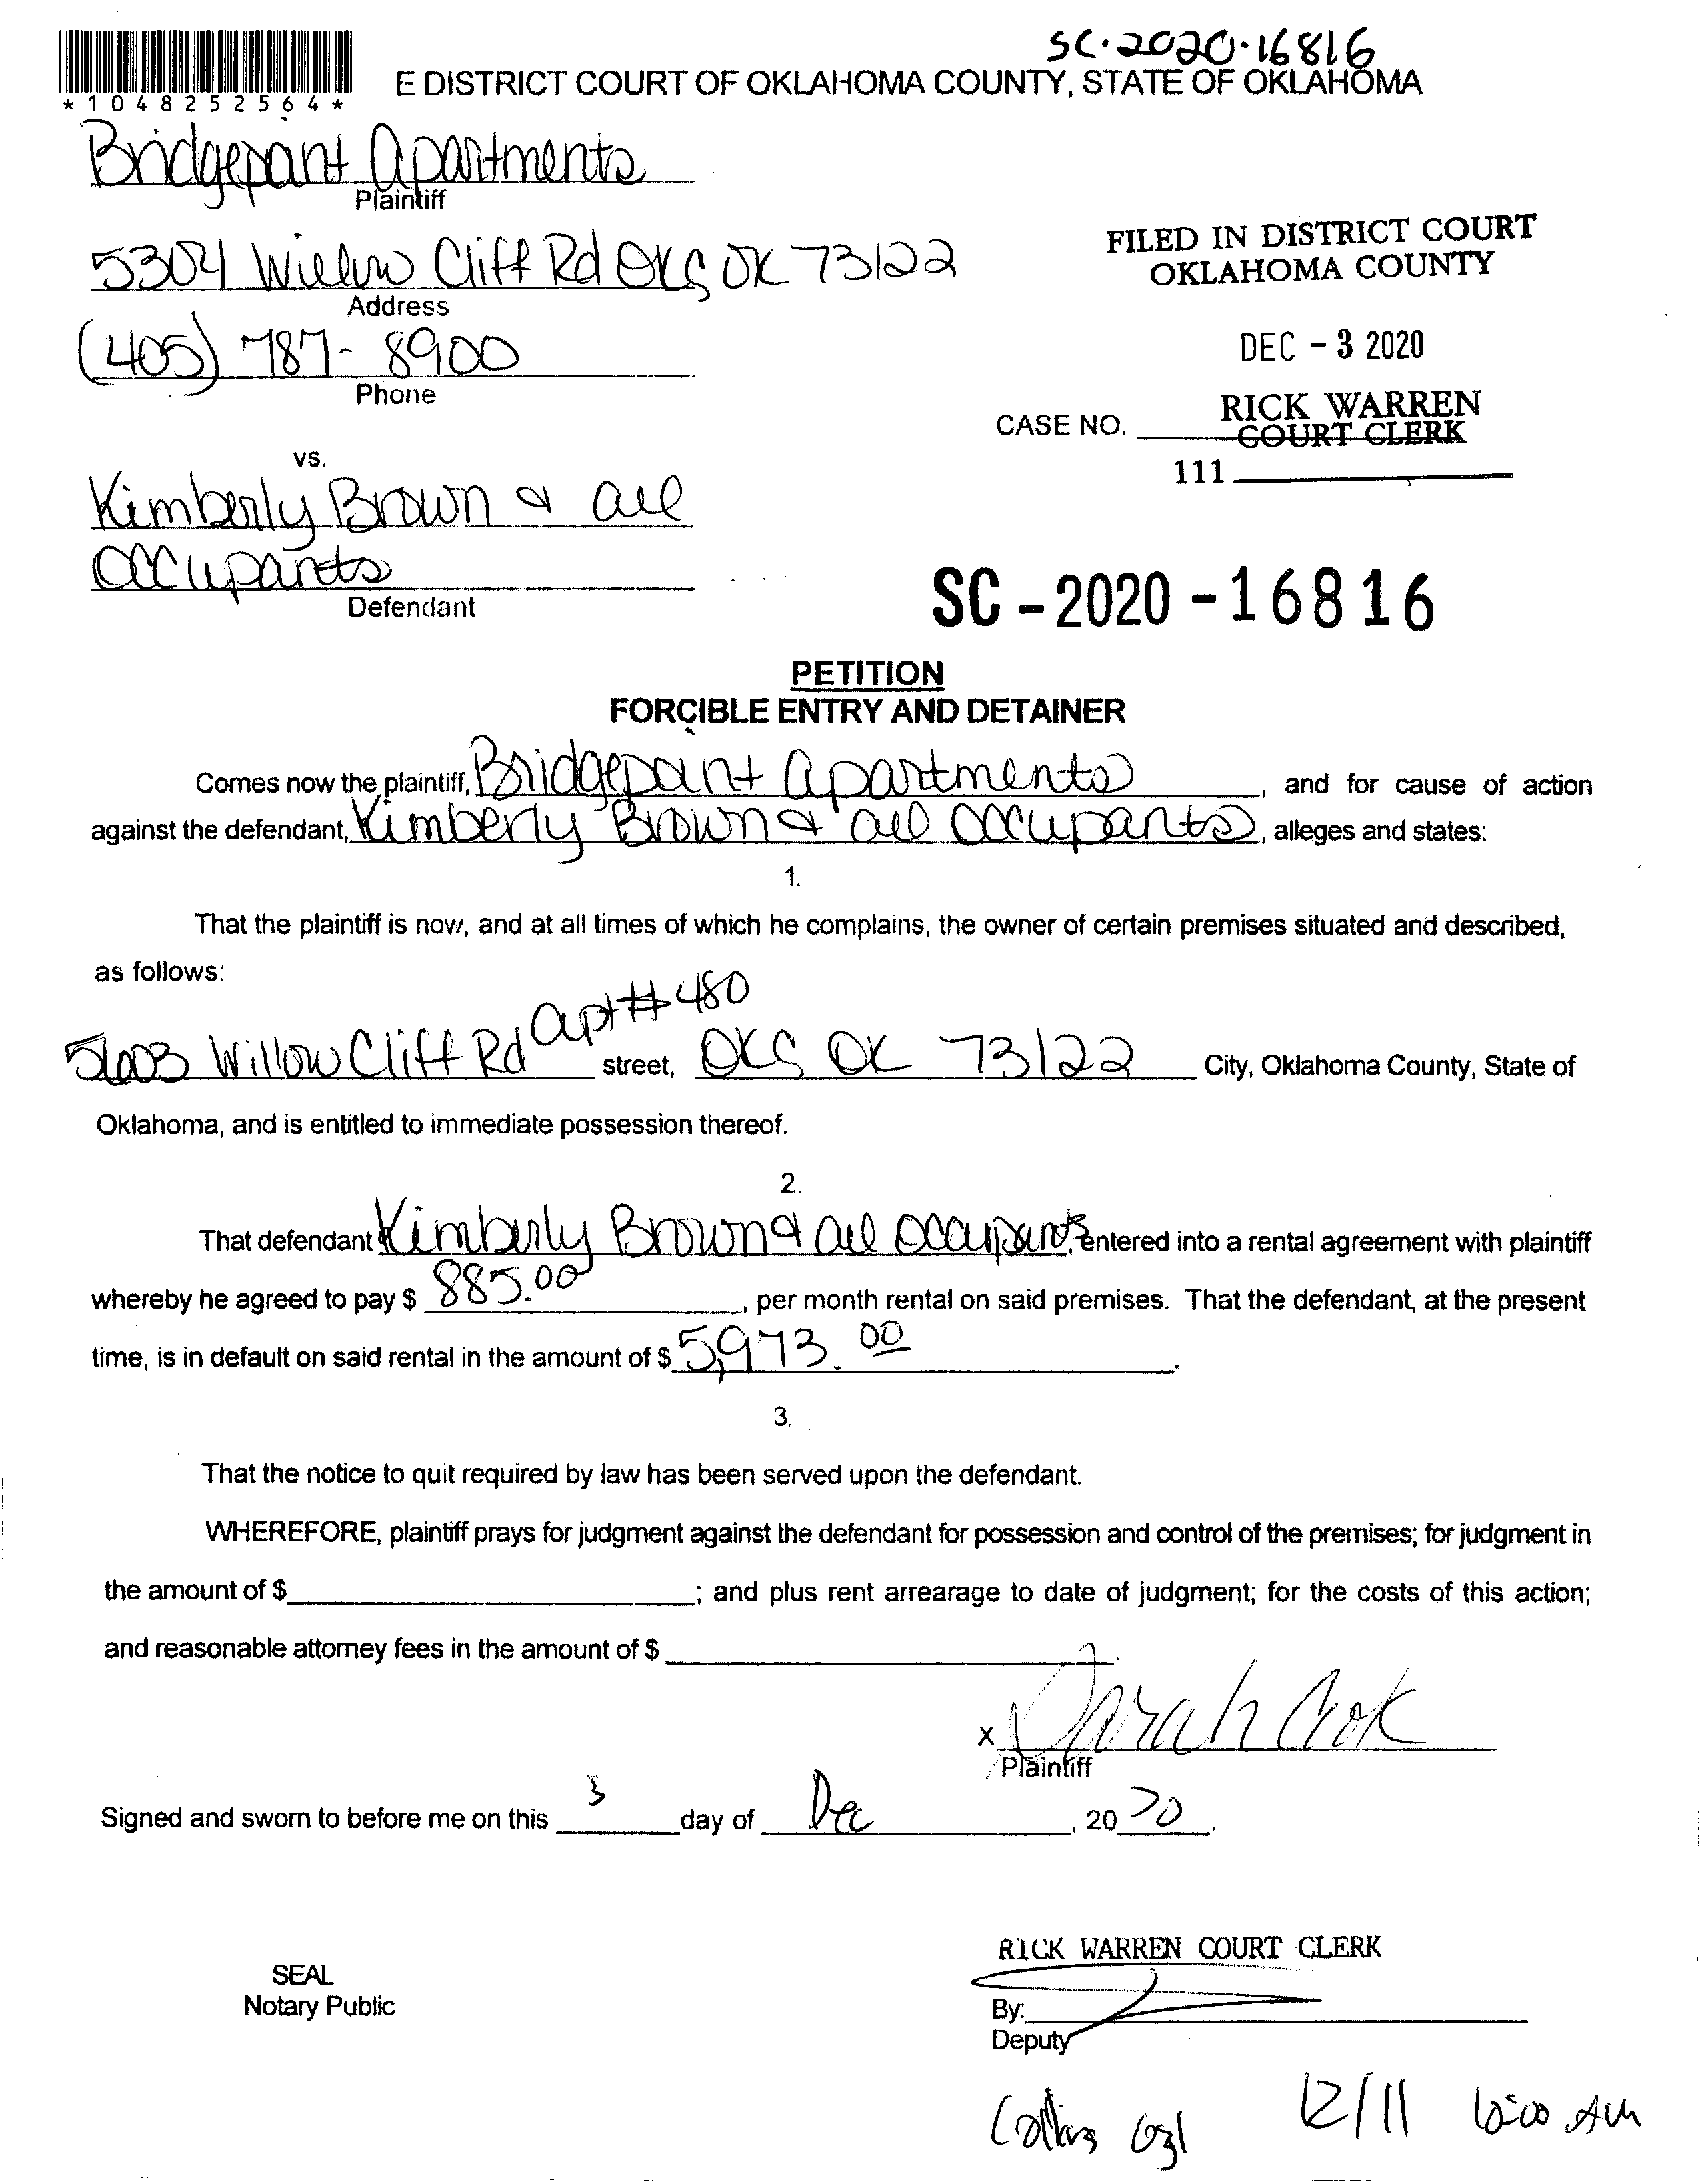 SC-2020-16816
*1048252564*
E DISTRICT COURT OF OKLAHOMA COUNTY, STATE OF OKLAHOMA
Bridgepoint Apartments
Plaintiff
5304 Willow Cliff Rd OKC OK 73122
Address
FILED IN DISTRICT COURT
OKLAHOMA COUNTY
(405) 787-8900
Phone
DEC - 3 2020
RICK WARREN
CASE NO. COURT CLERK
111
vs.
Kimberly Brown & all
Occupants
Defendant
SC-2020-16816
PETITION
FORCIBLE ENTRY AND DETAINER
Comes now the plaintiff, Bridgepoint Apartments, and for cause of action
against the defendant, Kimberly Brown & all Occupants, alleges and states:
1.
That the plaintiff is now, and at all times of which he complains, the owner of certain premises situated and described,
as follows:
5603 Willow Cliff Rd Apt#480 street, OKC OK 73122 City, Oklahoma County, State of
Oklahoma, and is entitled to immediate possession thereof.
2.
That defendant Kimberly Brown & all Occupants, entered into a rental agreement with plaintiff
whereby he agreed to pay $ 885.00, per month rental on said premises. That the defendant, at the present
time, is in default on said rental in the amount of $ 5,973.00.
3.
That the notice to quit required by law has been served upon the defendant.
WHEREFORE, plaintiff prays for judgment against the defendant for possession and control of the premises; for judgment in
the amount of $ ; and plus rent arrearage to date of judgment; for the costs of this action;
and reasonable attorney fees in the amount of $ .
x Sarah Cook
Plaintiff
Signed and sworn to before me on this 3 day of Dec, 2020.
RICK WARREN COURT CLERK
SEAL
Notary Public
By:
Deputy
12/11 10:00 AM